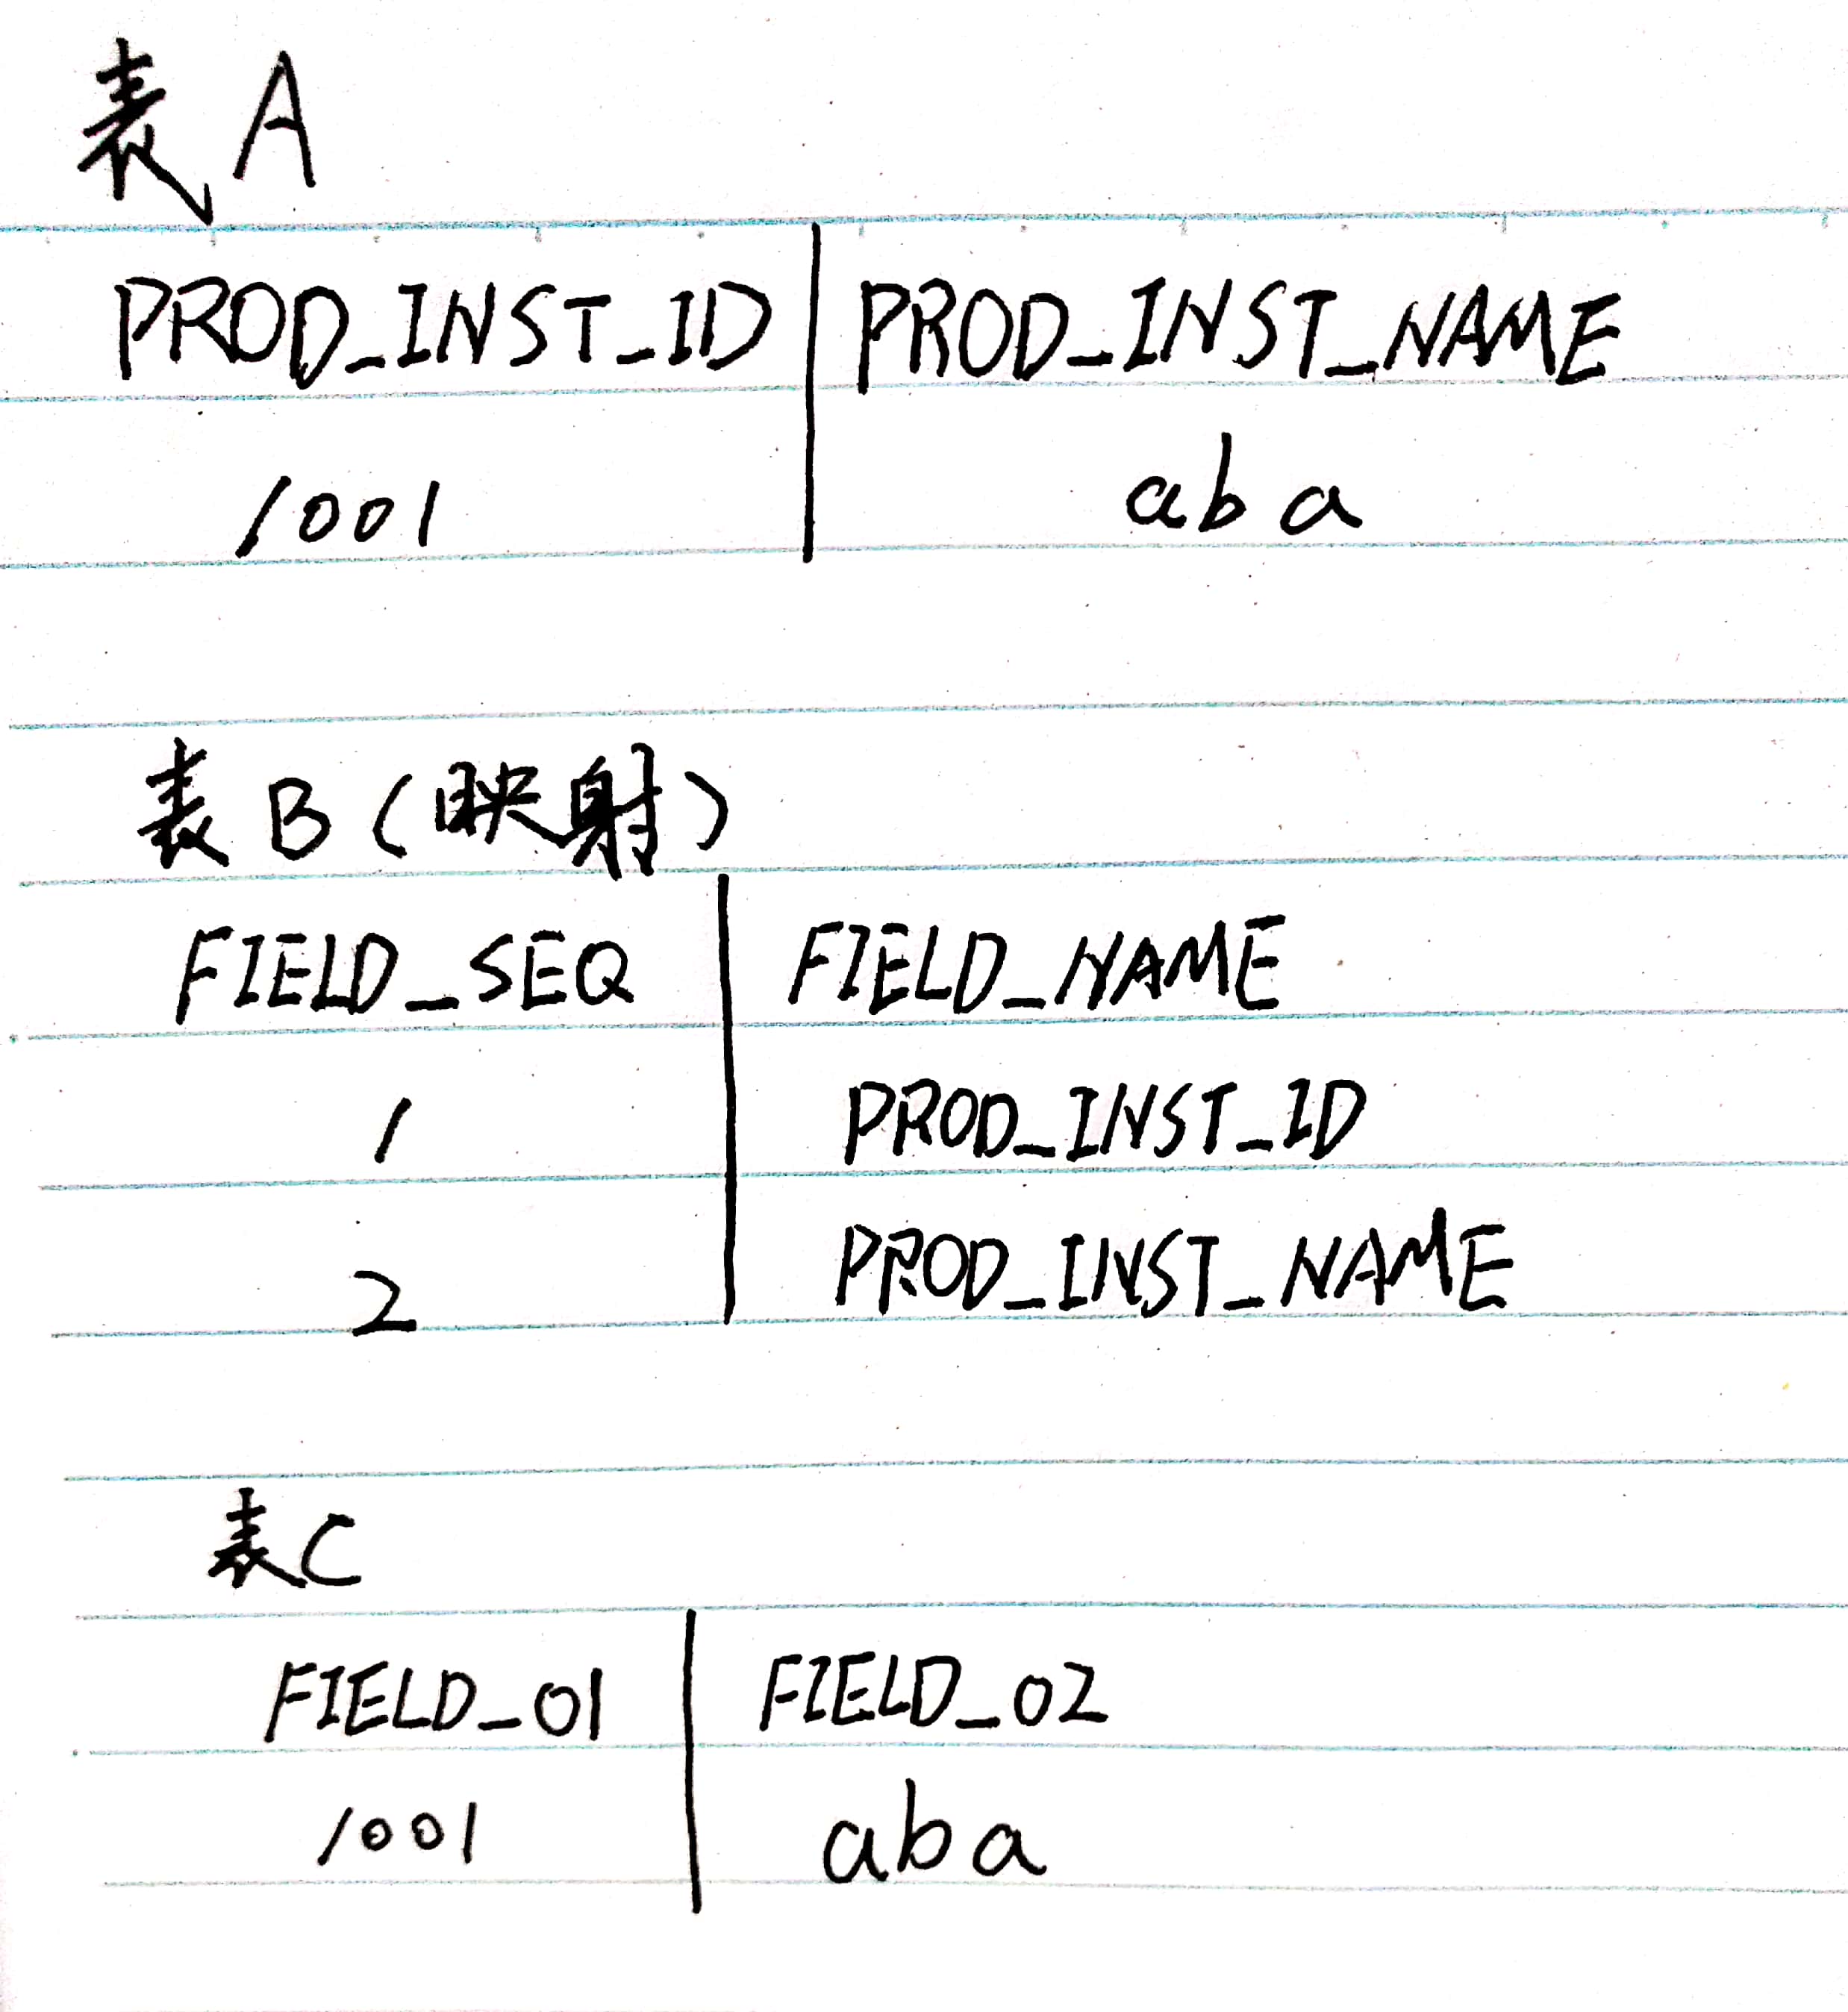 表A
PROD_INST_ID PROD_INST_NAME
1001 aba
表B(映射)
FIELD_SEQ FIELD_NAME
1 PROD_INST_ID
2 PROD_INST_NAME
表C
FIELD_01 FIELD_02
1001 aba